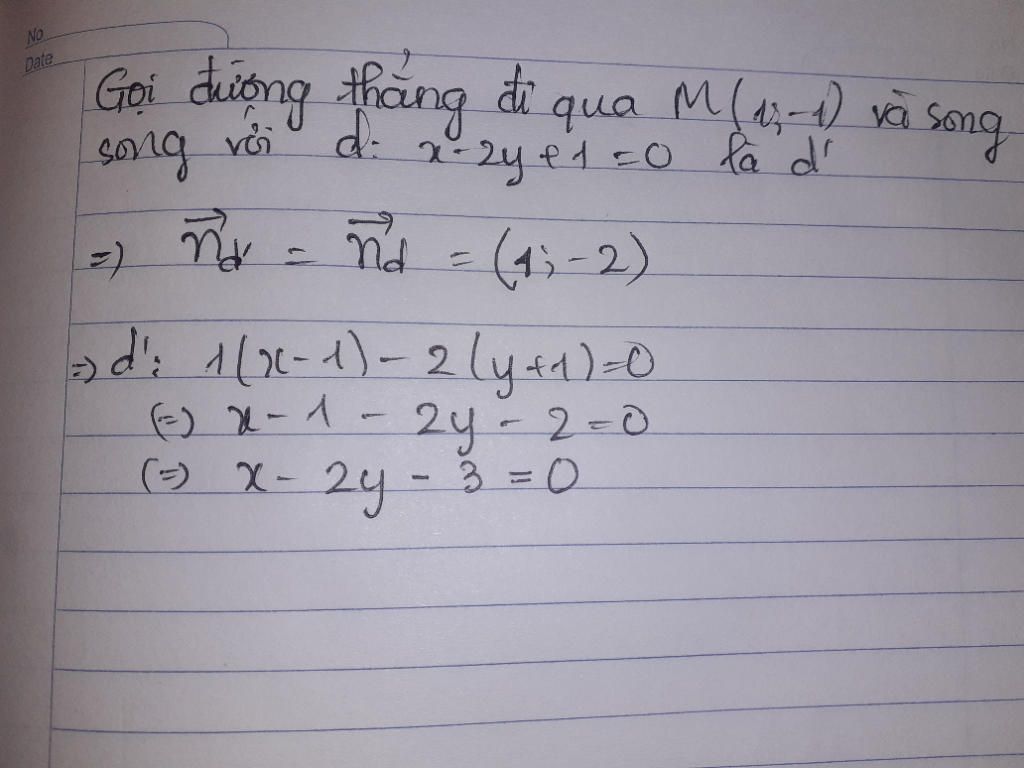 No
Date
Gọi đường thẳng đi qua M(1;-1) và song
song với d: x-2y+1=0 là d'
=) n⃗d' = n⃗d = (1;-2)
=> d': 1(x-1)-2(y+1)=0
(=) x-1-2y-2=0
(=) x-2y-3=0